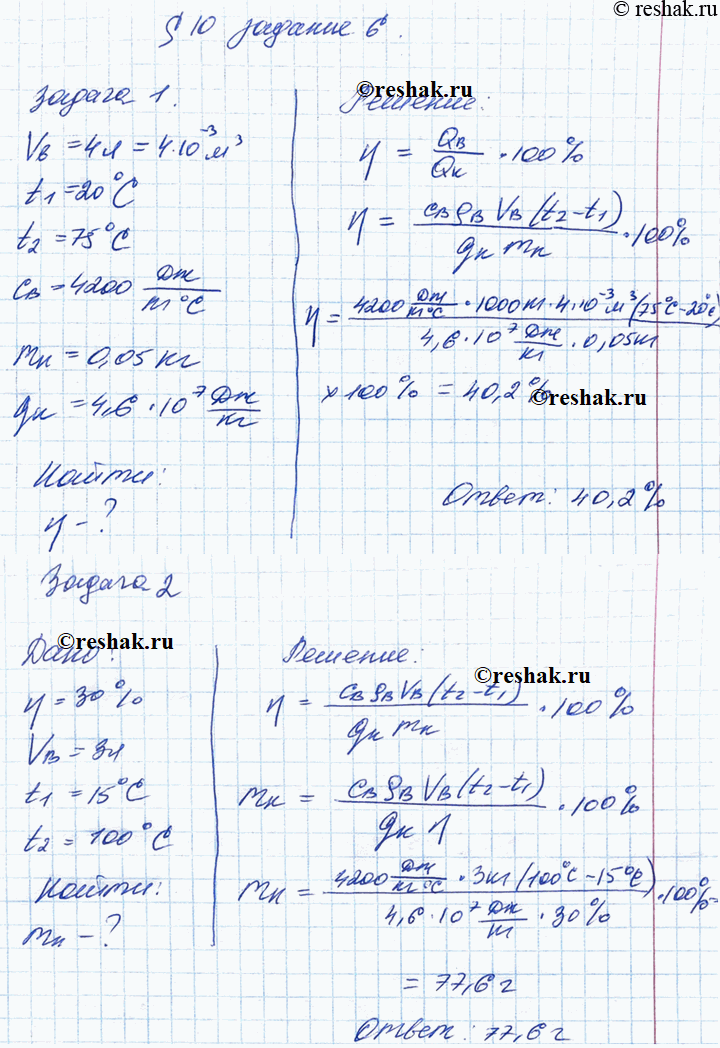 © reshak.ru
§ 10 задание 6.
Задача 1.
Vв = 4л = 4·10⁻³ м³
t₁ = 20°C
t₂ = 75°C
cв = 4200 Дж/кг°C
mк = 0,05 кг
qк = 4,6·10⁷ Дж/кг
Найти:
η - ?
©reshak.ru
Решение:
η = Qв/Qк · 100%
η = cв ρв Vв (t₂ - t₁) / qк mк · 100%
η = 4200 Дж/кг°C · 1000 кг · 4·10⁻³ м³ (75°C - 20°C) / 4,6·10⁷ Дж/кг · 0,05 кг
× 100% = 40,2%
©reshak.ru
Ответ: 40,2%
Задача 2
©reshak.ru
Дано:
η = 30%
Vв = 3л
t₁ = 15°C
t₂ = 100°C
Найти:
mк - ?
Решение:
©reshak.ru
η = cв ρв Vв (t₂ - t₁) / qк mк · 100%
mк = cв ρв Vв (t₂ - t₁) / qк η · 100%
mк = 4200 Дж/кг°C · 3кг (100°C - 15°C) / 4,6·10⁷ Дж/кг · 30% · 100% =
= 77,6 г
Ответ: 77,6 г